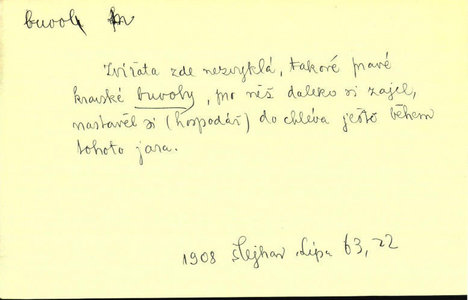 buvol m
Zvířata zde nezvyklá, takové pravé
kravské buvoly, pro něž daleko si zajel,
nastavěl si (hospodář) do chléva ještě během
tohoto jara.
1908 Šlejhar, Lípa 63, 22